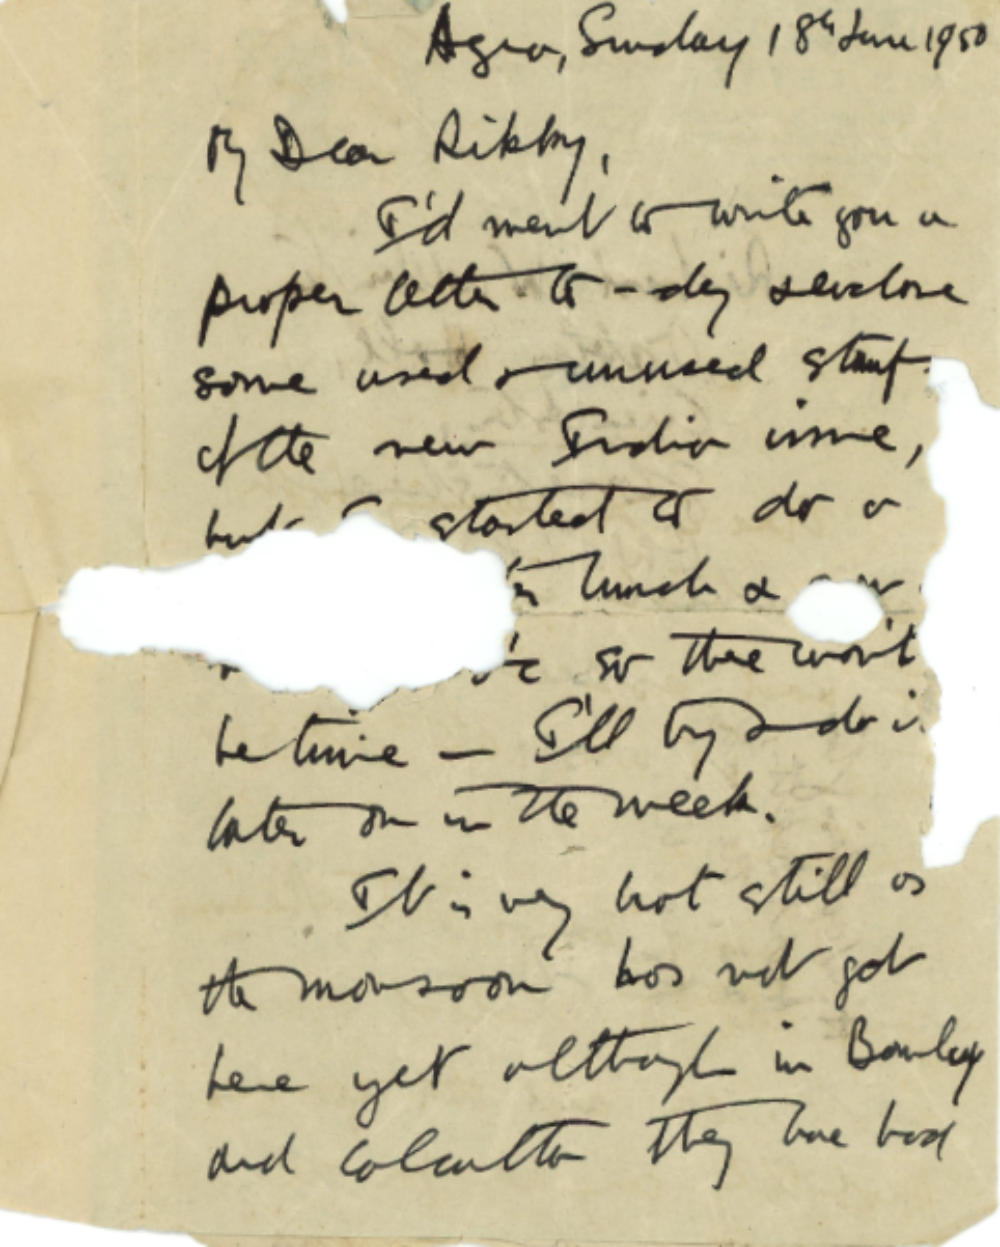 Agra, Sunday 18th June 1950
My Dear
I'd meant to write you a
proper letter to-day & enclose
some used & unused stamp
of the new India issue,
but I started to do a
lunch &
so there won't
be time — I'll try & do i
later on in the week.
It is very hot still as
the monsoon has not got
here yet although in Bombay
and Calcutta they have had